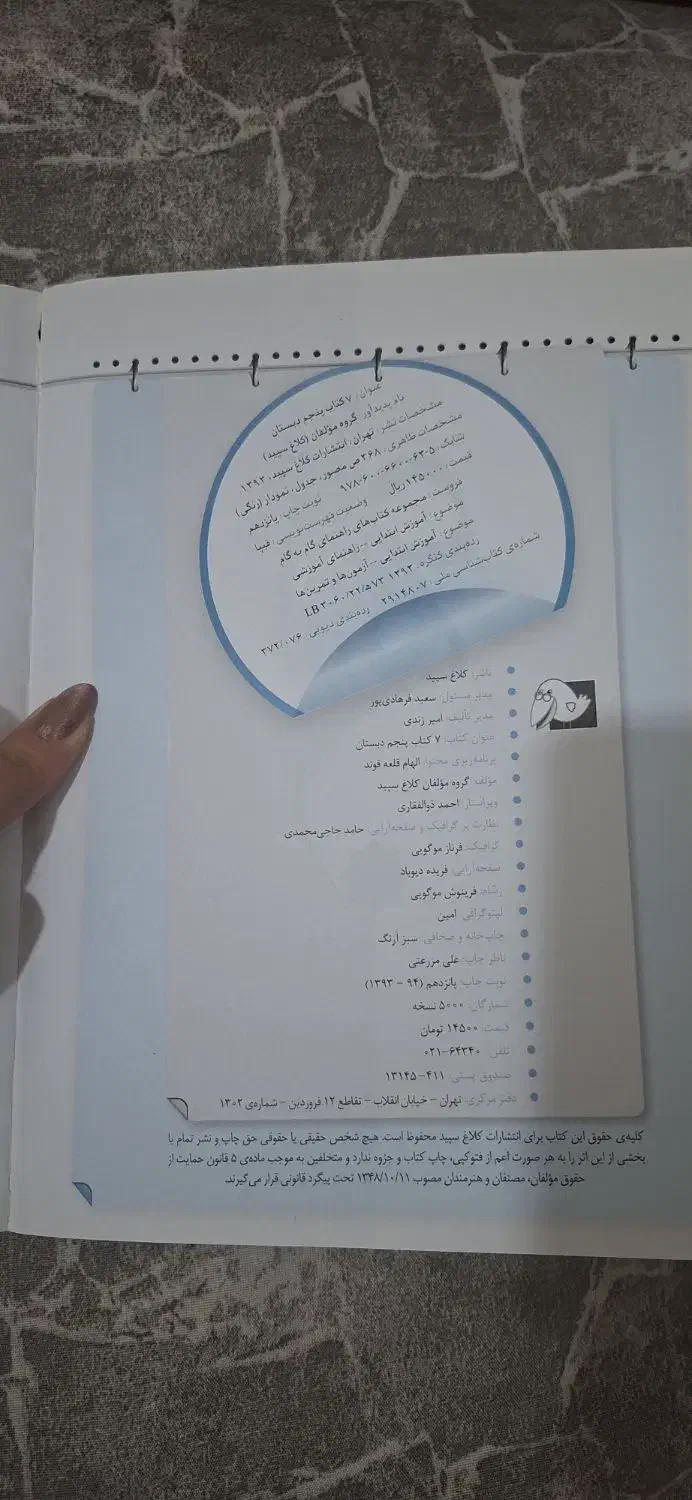 عنوان: ۷ کتاب پنجم دبستان
نام پدیدآور: گروه مؤلفان (کلاغ سپید)
مشخصات نشر: تهران، انتشارات کلاغ سپید، ۱۳۹۳.
مشخصات ظاهری: ۳۶۸ ص مصور، جدول، نمودار (رنگی)
شابک: ۵-۶۳-۶۶۰۰-۶۰۰-۹۷۸ نوبت چاپ: پانزدهم
قیمت: ۱۴۵۰۰۰ ریال وضعیت فهرست‌نویسی: فیپا
فروست: مجموعه کتاب‌های راهنمای گام به گام
موضوع: آموزش ابتدایی -- راهنمای آموزشی
موضوع: آموزش ابتدایی -- آزمون‌ها و تمرین‌ها
رده‌بندی کنگره: ۱۳۹۳ ۷۳ه‍/۲۲/۳۰۶۰ LB
شماره‌ی کتاب‌شناسی ملی: ۲۹۱۴۸۰۷ رده‌بندی دیویی: ۳۷۲/۰۷۶
ناشر: کلاغ سپید
مدیر مسئول: سعید فرهادی‌پور
مدیر تألیف: امیر زندی
عنوان کتاب: ۷ کتاب پنجم دبستان
برنامه‌ریزی محتوا: الهام قلعه فوند
مؤلف: گروه مؤلفان کلاغ سپید
ویراستار: احمد ذوالفقاری
نظارت بر گرافیک و صفحه‌آرایی: حامد حاجی‌محمدی
گرافیک: فرناز موگویی
صفحه‌آرایی: فریده دیوباد
رسّام: فرینوش موگویی
لیتوگرافی: امین
چاپ‌خانه و صحافی: سبز آرنگ
ناظر چاپ: علی مزرعتی
نوبت چاپ: پانزدهم (۹۴ - ۱۳۹۳)
شمارگان: ۵۰۰۰ نسخه
قیمت: ۱۴۵۰۰ تومان
تلفن: ۶۴۳۴۰-۰۲۱
صندوق پستی: ۴۱۱-۱۳۱۴۵
دفتر مرکزی: تهران - خیابان انقلاب - تقاطع ۱۲ فروردین - شماره‌ی ۱۳۰۲
کلیه‌ی حقوق این کتاب برای انتشارات کلاغ سپید محفوظ است. هیچ شخص حقیقی یا حقوقی حق چاپ و نشر تمام یا
بخشی از این اثر را به هر صورت اعم از فتوکپی، چاپ کتاب و جزوه ندارد و متخلفین به موجب ماده‌ی ۵ قانون حمایت از
حقوق مؤلفان، مصنفان و هنرمندان مصوب ۱۳۴۸/۱۰/۱۱ تحت پیگرد قانونی قرار می‌گیرند.